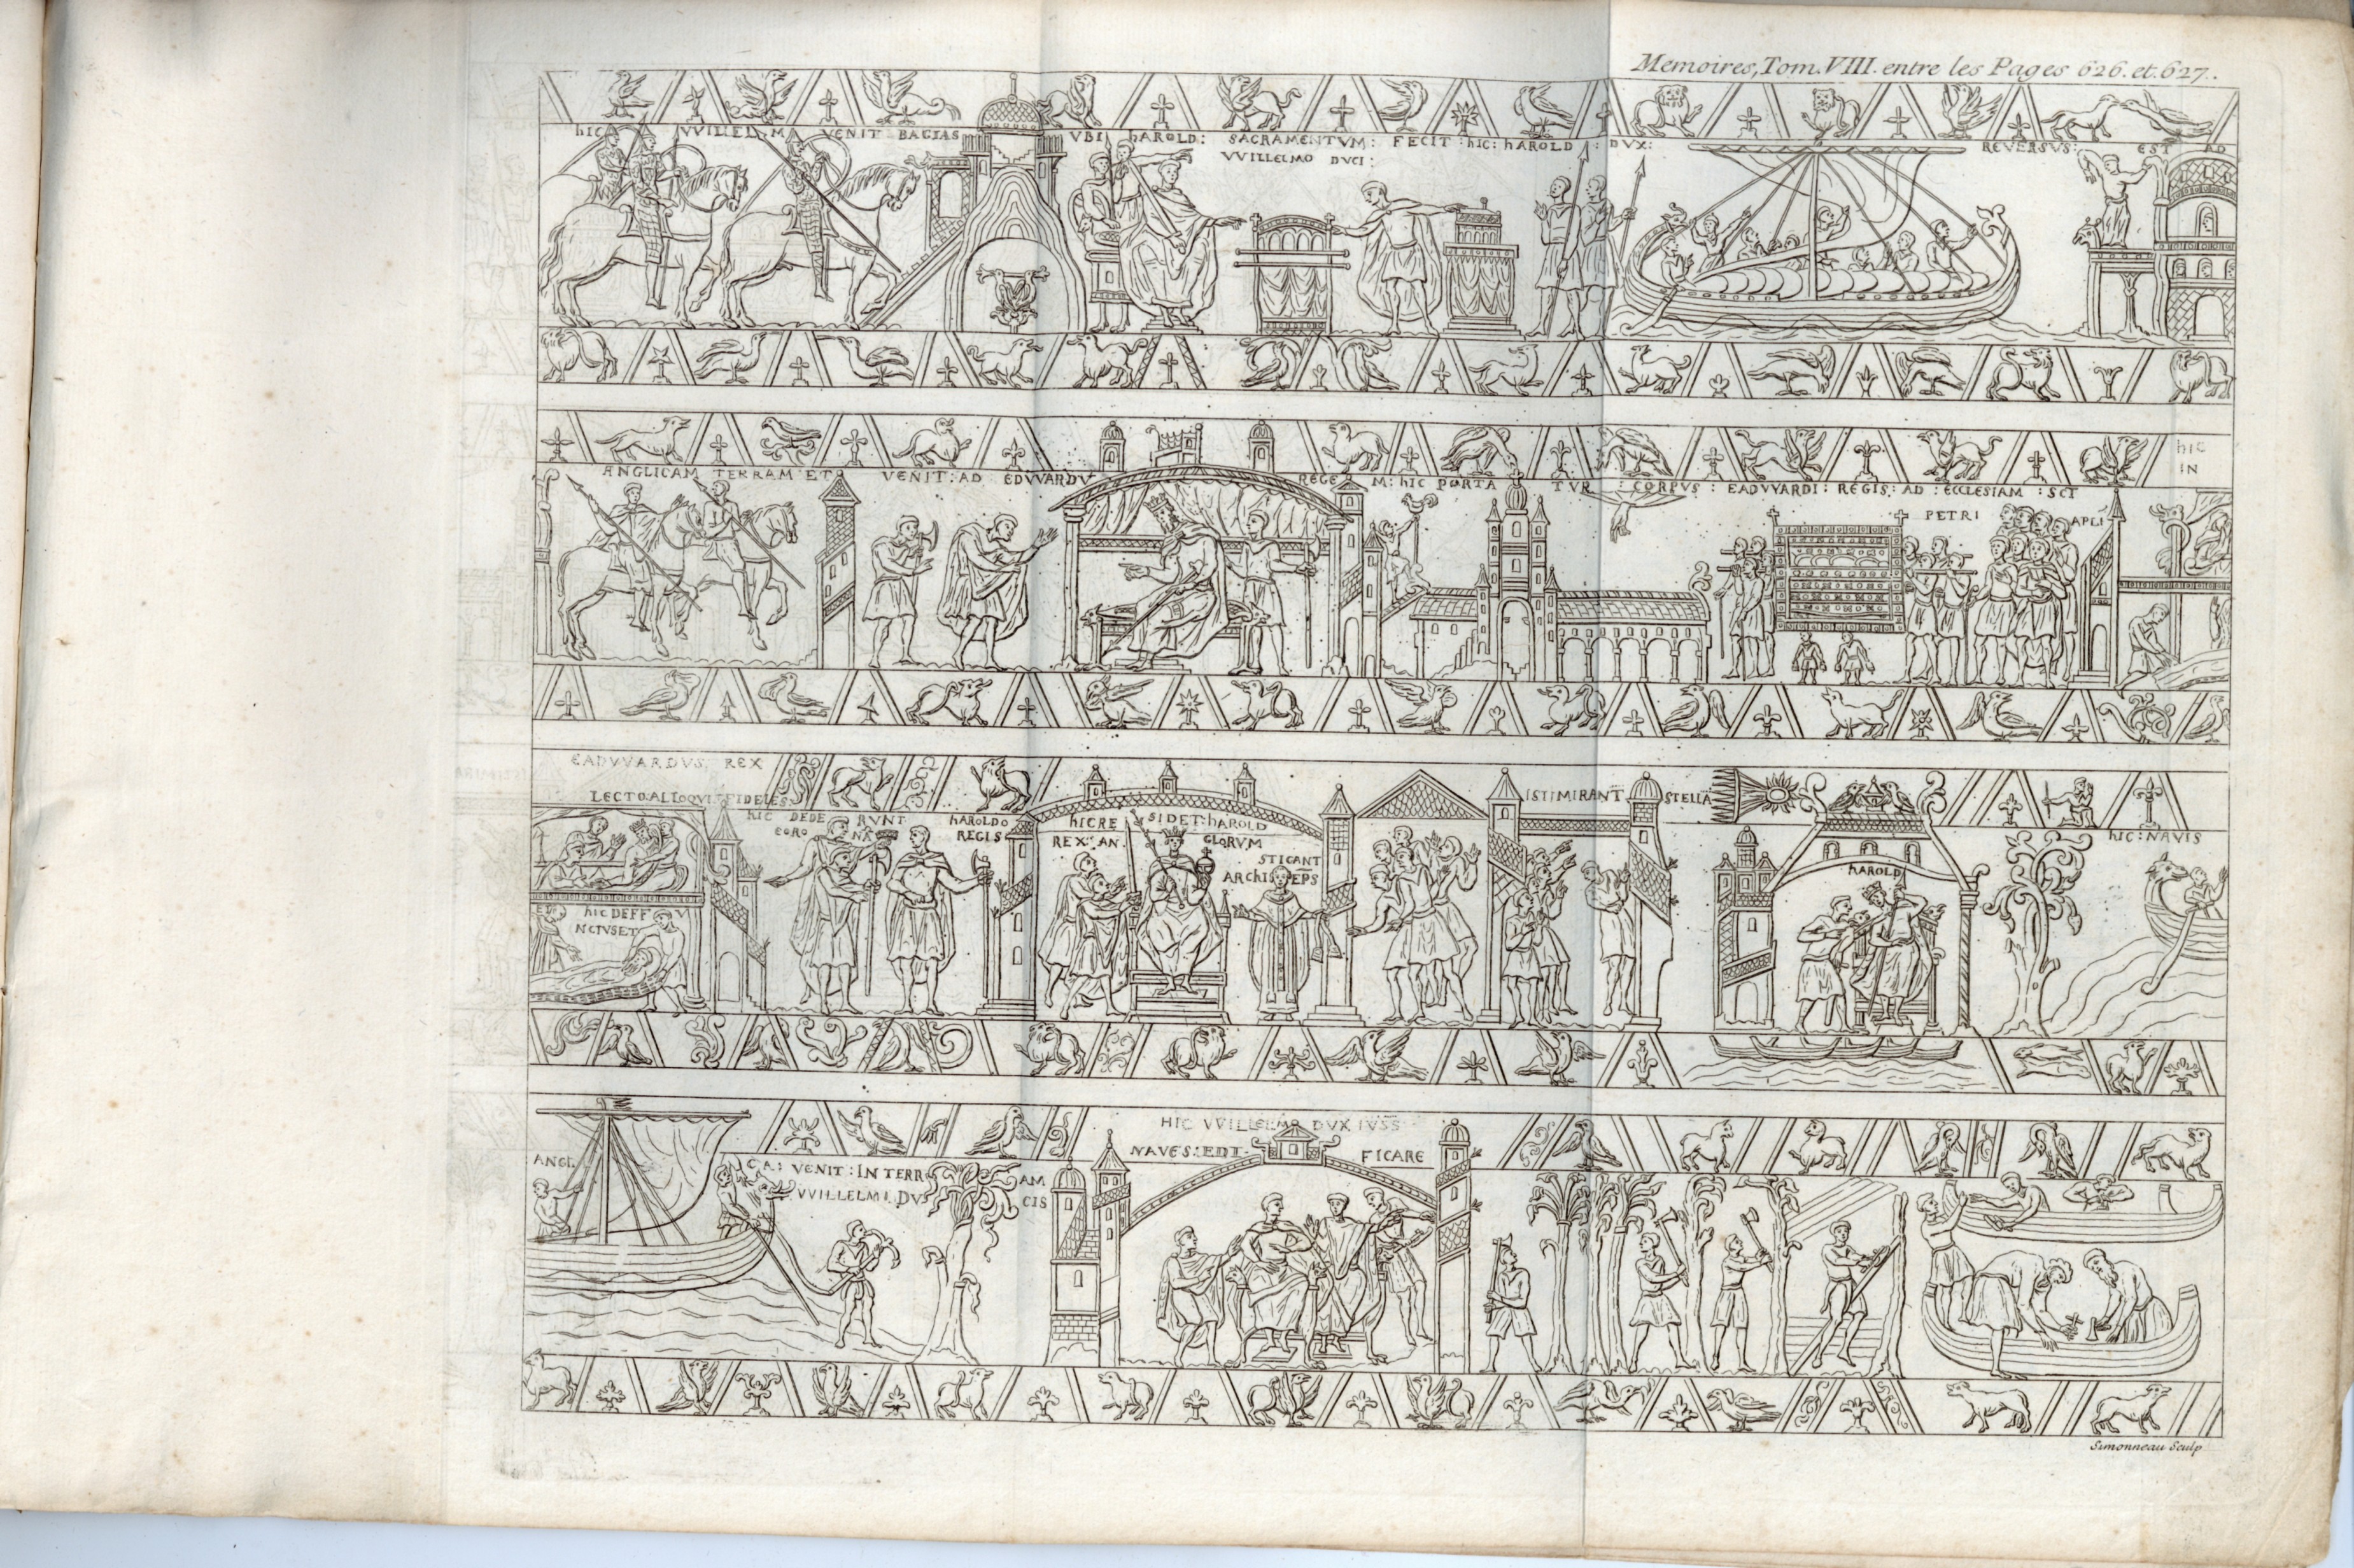 Memoires, Tom. VIII. entre les Pages 626. et. 627.
hIC VVILLELM VENIT BAGIAS VBI hAROLD: SACRAMENTVM: FECIT: hIC: hAROLD: DVX: REVERSVS: EST AD
VVILLELMO DVCI:
ANGLICAM TERRAM ET VENIT: AD EDVVARDV REGE M: hIC PORTA TVR: CORPVS: EADVVARDI: REGIS: AD: ECCLESIAM: SCT
hIC
IN
PETRI APLI
EADVVARDVS REX
LECTO ALLOQVIT FIDELES
hIC DEDE RVNT hAROLDO
CORO NA REGIS
hIC DEFF V
NCTVS ET
hIC RE SIDET: hAROLD
REX: AN. GLORVM
STIGANT
ARCHIS EPS
ISTI MIRANT STELLA
hAROLD
hIC: NAVIS
ANGL CA: VENIT: IN TERR AM
VVILLELMI DV CIS
HIC VVILLELM DVX IVSS
NAVES: EDI FICARE
Simonneau Sculp